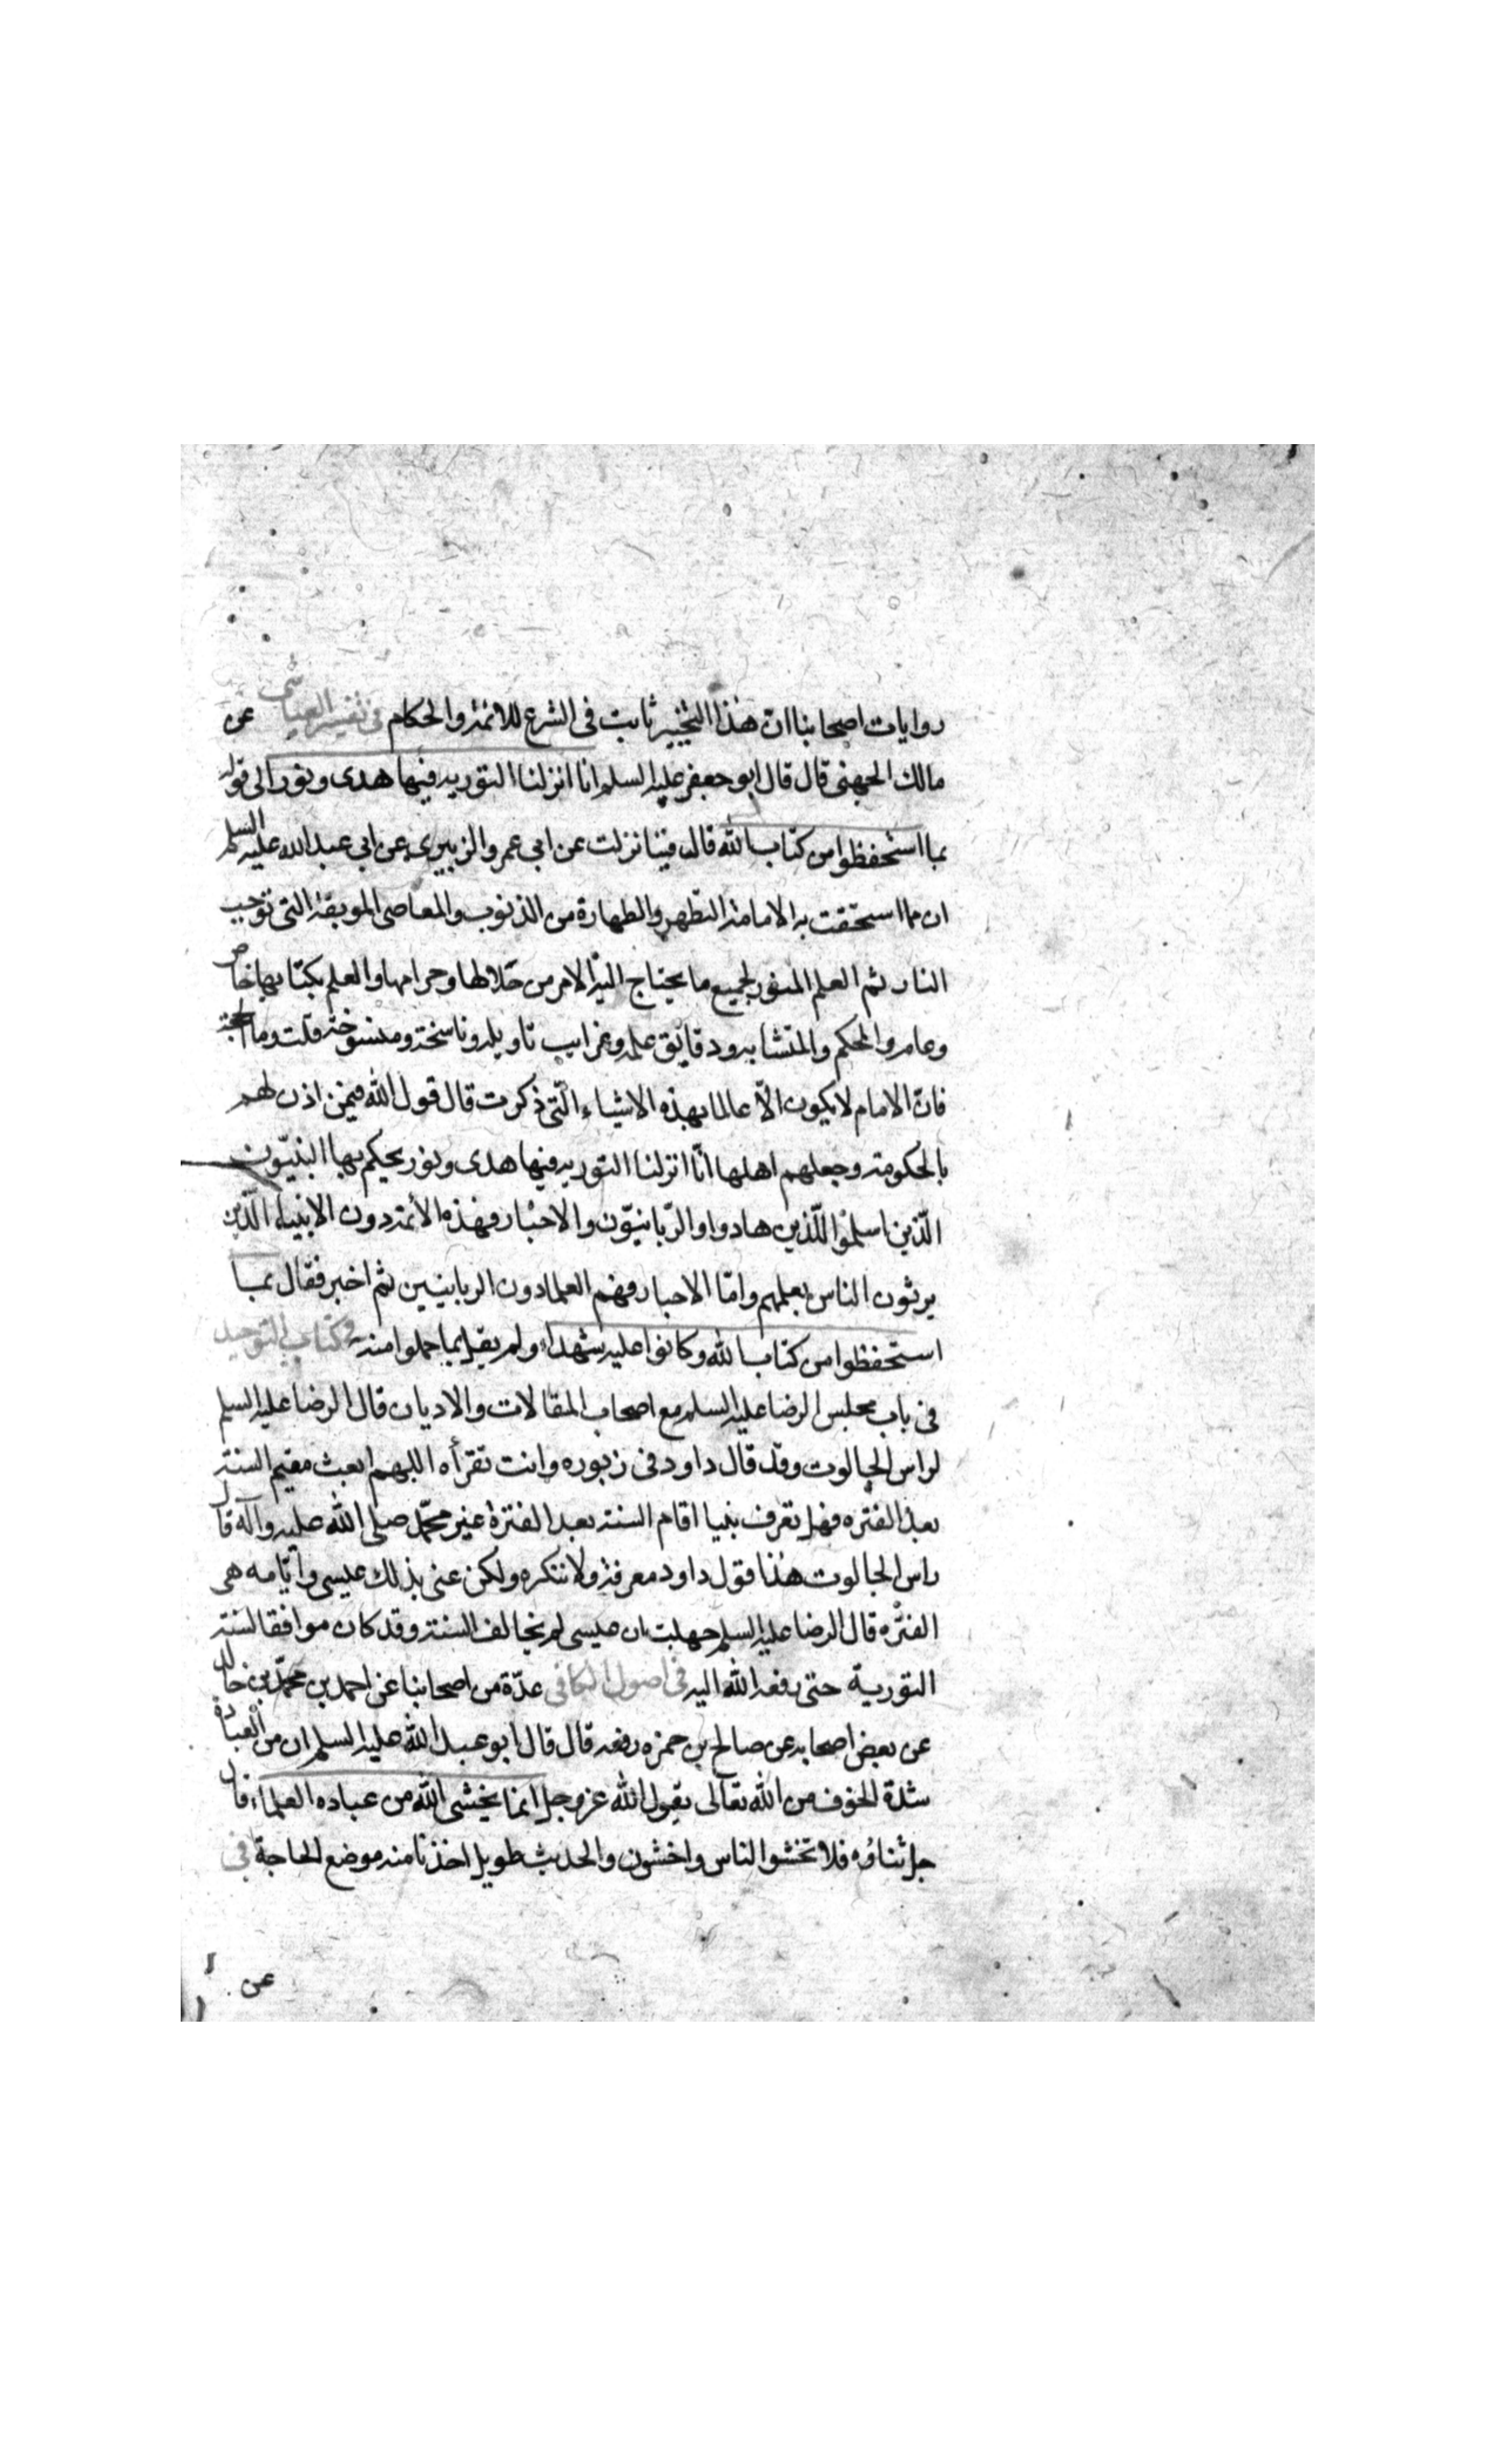 روايات اصحابنا ان هذا التخيير ثابت فى الشرع للائمة والحكام فى تفسير العياشى عن
مالك الجهنى قال قال ابو جعفر عليه السلم انا انزلنا التورية فيها هدى ونور الى قوله
بما استحفظوا من كتاب الله قال فينا نزلت عن ابى عمرو الزبيرى عن ابى عبد الله عليه السلم
ان مما استحقت به الامامة التطهر والطهارة من الذنوب والمعاصى الموبقة التى توجب
النار ثم العلم المنور لجميع ما يحتاج اليه الامر من حلالها وحرامها والعلم بكتابها خاص
وعامه والمحكم والمتشابه ودقايق علمه وغرايب تاويله وناسخه ومنسوخه قلت وما الحجة
فان الامام لا يكون الا عالما بهذه الاشياء التى ذكرت قال قول الله فيمن اذن لهم
بالحكومة وجعلهم اهلها انا انزلنا التورية فيها هدى ونور يحكم بها النبيون
الذين اسلموا للذين هادوا والربانيون والاحبار فهذه الأئمة دون الانبياء الذين
يرثون الناس بعلمهم واما الاحبار فهم العلماء دون الربانيين ثم اخبر فقال بما
استحفظوا من كتاب الله وكانوا عليه شهداء ولم يقل بما حملوا منه فى كتاب التوحيد
فى باب مجلس الرضا عليه السلم مع اصحاب المقالات والاديان قال الرضا عليه السلم
لراس الجالوت وقد قال داود فى زبوره وانت تقرأه اللهم ابعث مقيم السنة
بعد الفتره فهل تعرف نبيا اقام السنة بعد الفترة غير محمد صلى الله عليه وآله قال
راس الجالوت هذا قول داود معرفة ولا ننكره ولكن عنى بذلك عيسى وايامه هى
الفتره قال الرضا عليه السلم جهلت ان عيسى لم يخالف السنة وقد كان موافقا لسنة
التورية حتى رفعه الله اليه فى اصول الكافى عدة من اصحابنا عن احمد بن محمد بن خالد
عن بعض اصحابه عن صالح بن حمزه رفعه قال قال ابو عبد الله عليه السلم ان من العبادة
شدة الخوف من الله تعالى يقول الله عز وجل انما يخشى الله من عباده العلماء وقال
جل ثناؤه فلا تخشوا الناس واخشون والحديث طويل اخذنا منه موضع الحاجة فى
عن